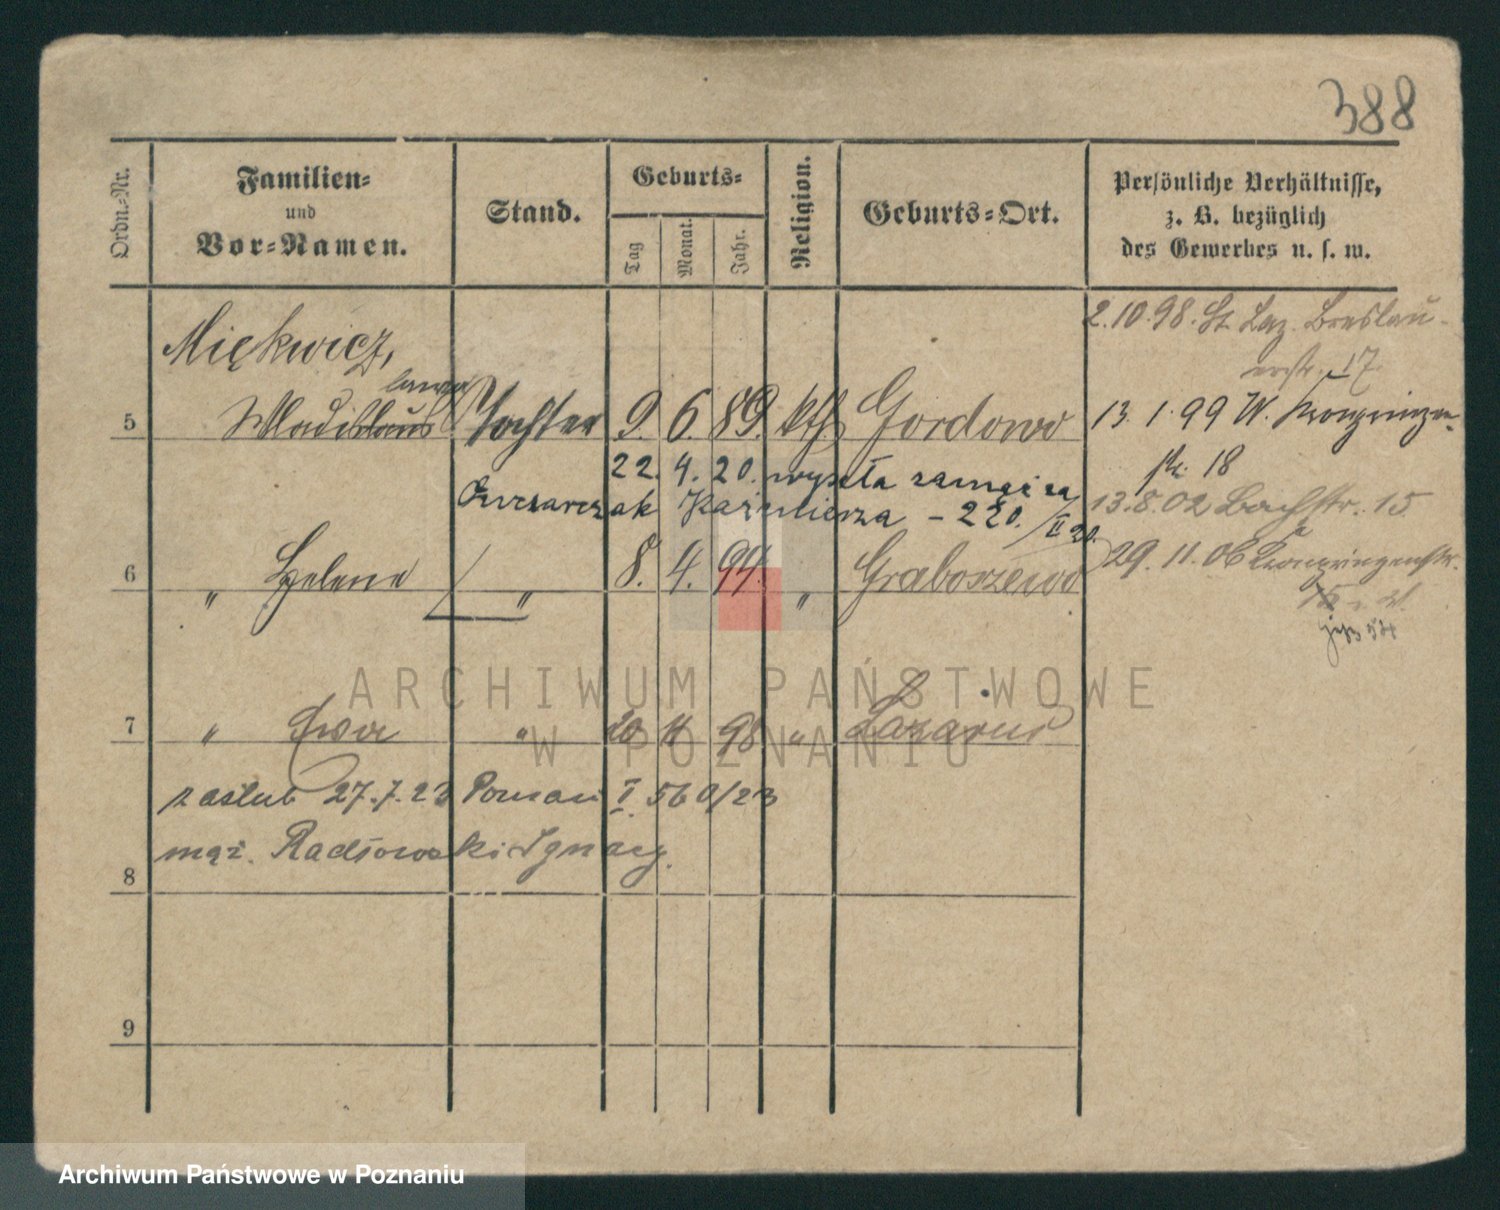 388
Ordn.-Nr.
Familien-
und
Vor-Namen.
Stand.
Geburts-
Tag
Monat.
Jahr.
Religion.
Geburts-Ort.
Persönliche Verhältnisse,
z. B. bezüglich
des Gewerbes u. s. w.
2.10.98. St. Laz. Breslau-
erstr. 17.
Miękwicz,
5 Wladislaus Tochter 9. 6. 89. kth Gordowo
13. 1. 99 W. Kronprinzen-
str. 18
22. 4. 20. wyszła zamąż za
Owczarczak Kaźmierza - 220./II 20.
13.8.02 Bachstr. 15
6 " Helene " 8. 4. 94. " Graboszewo
29. 11. 06 Kronprinzenstr.
7 " Ewa " 20 11 98 " Lazarus
zaślub 27.7.23 Poznań I. 560/23
mąż. Radłowski Ignacy.
8
9
ARCHIWUM PAŃSTWOWE
W POZNANIU
Archiwum Państwowe w Poznaniu